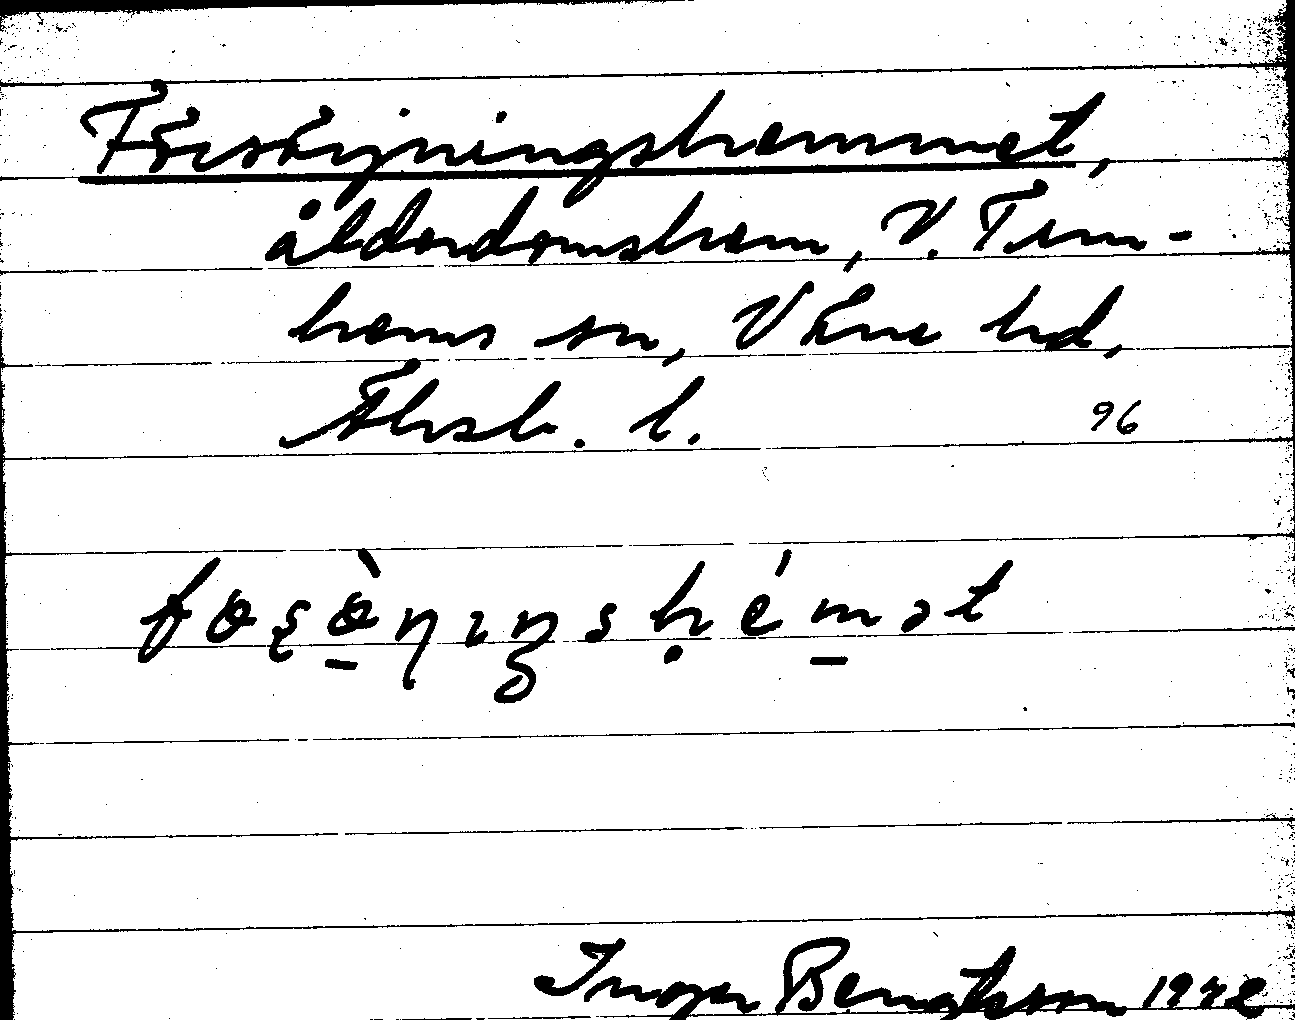 Försörjningshemmet,
ålderdomshem, V. Tun-
hems sn, Väne hd,
Älvsb. l. 96
fœsœ̀nıŋshémət
Inger Bengtsson 1942